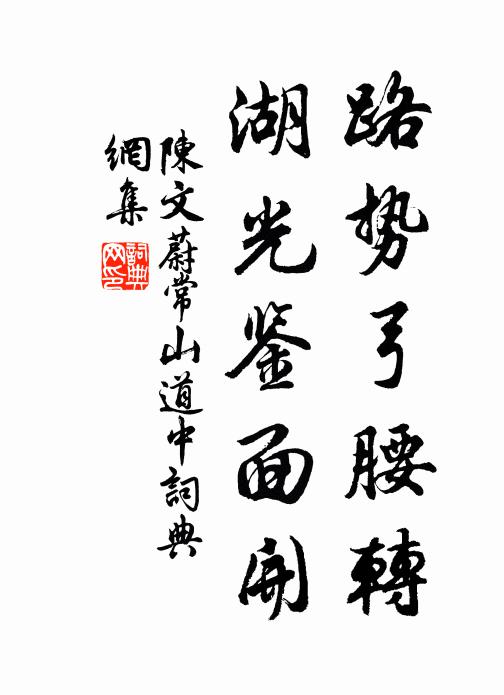 路势弓腰轉
湖光鉴面開
陳文蔚常山道中詞典
網集
詞典
网印